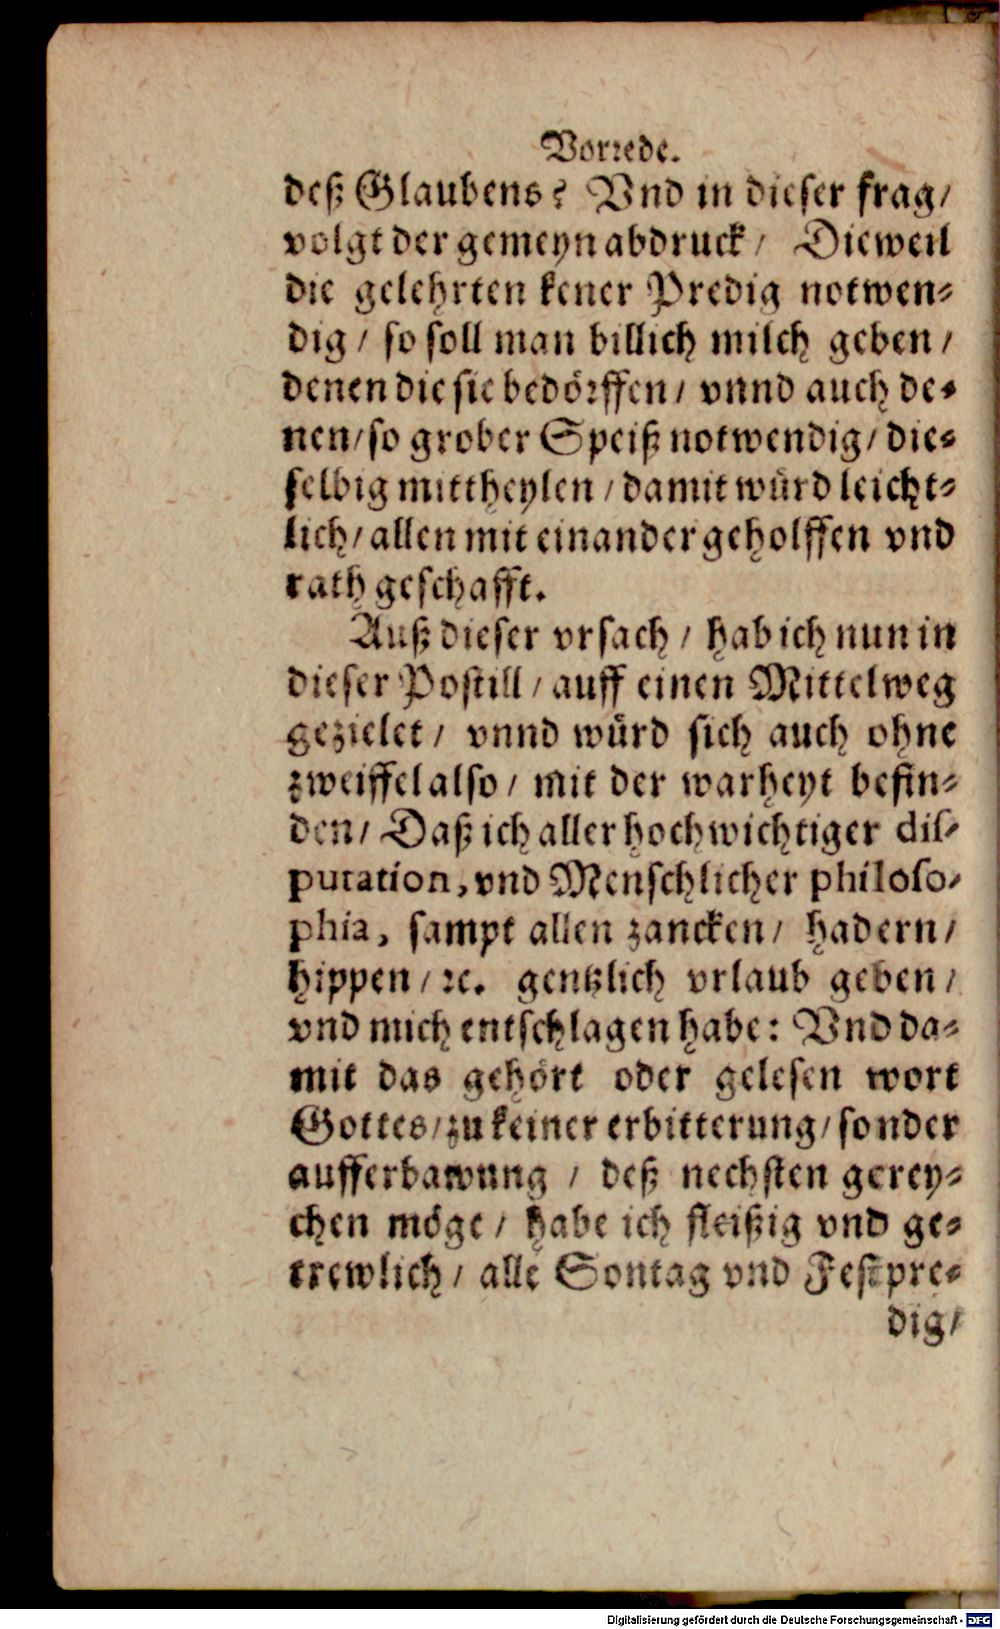 Vorrede.
deß Glaubens? Vnd in dieser frag/
volgt der gemeyn abdruck/ Dieweil
die gelehrten kener Predig notwen-
dig/ so soll man billich milch geben/
denen die sie bedörffen/ vnnd auch de-
nen/ so grober Speiß notwendig/ die-
selbig mittheylen/ damit würd leicht-
lich/ allen mit einander geholffen vnd
rath geschafft.
Auß dieser vrsach/ hab ich nun in
dieser Postill/ auff einen Mittelweg
gezielet/ vnnd würd sich auch ohne
zweiffel also/ mit der warheyt befin-
den/ Daß ich aller hochwichtiger dis-
putation, vnd Menschlicher philoso-
phia, sampt allen zancken/ hadern/
hippen/ ꝛc. gentzlich vrlaub geben/
vnd mich entschlagen habe: Vnd da-
mit das gehört oder gelesen wort
Gottes/ zu keiner erbitterung/ sonder
aufferbawung/ deß nechsten gerey-
chen möge/ habe ich fleißig vnd ge-
trewlich/ alle Sontag vnd Festpre-
dig/
Digitalisierung gefördert durch die Deutsche Forschungsgemeinschaft - DFG